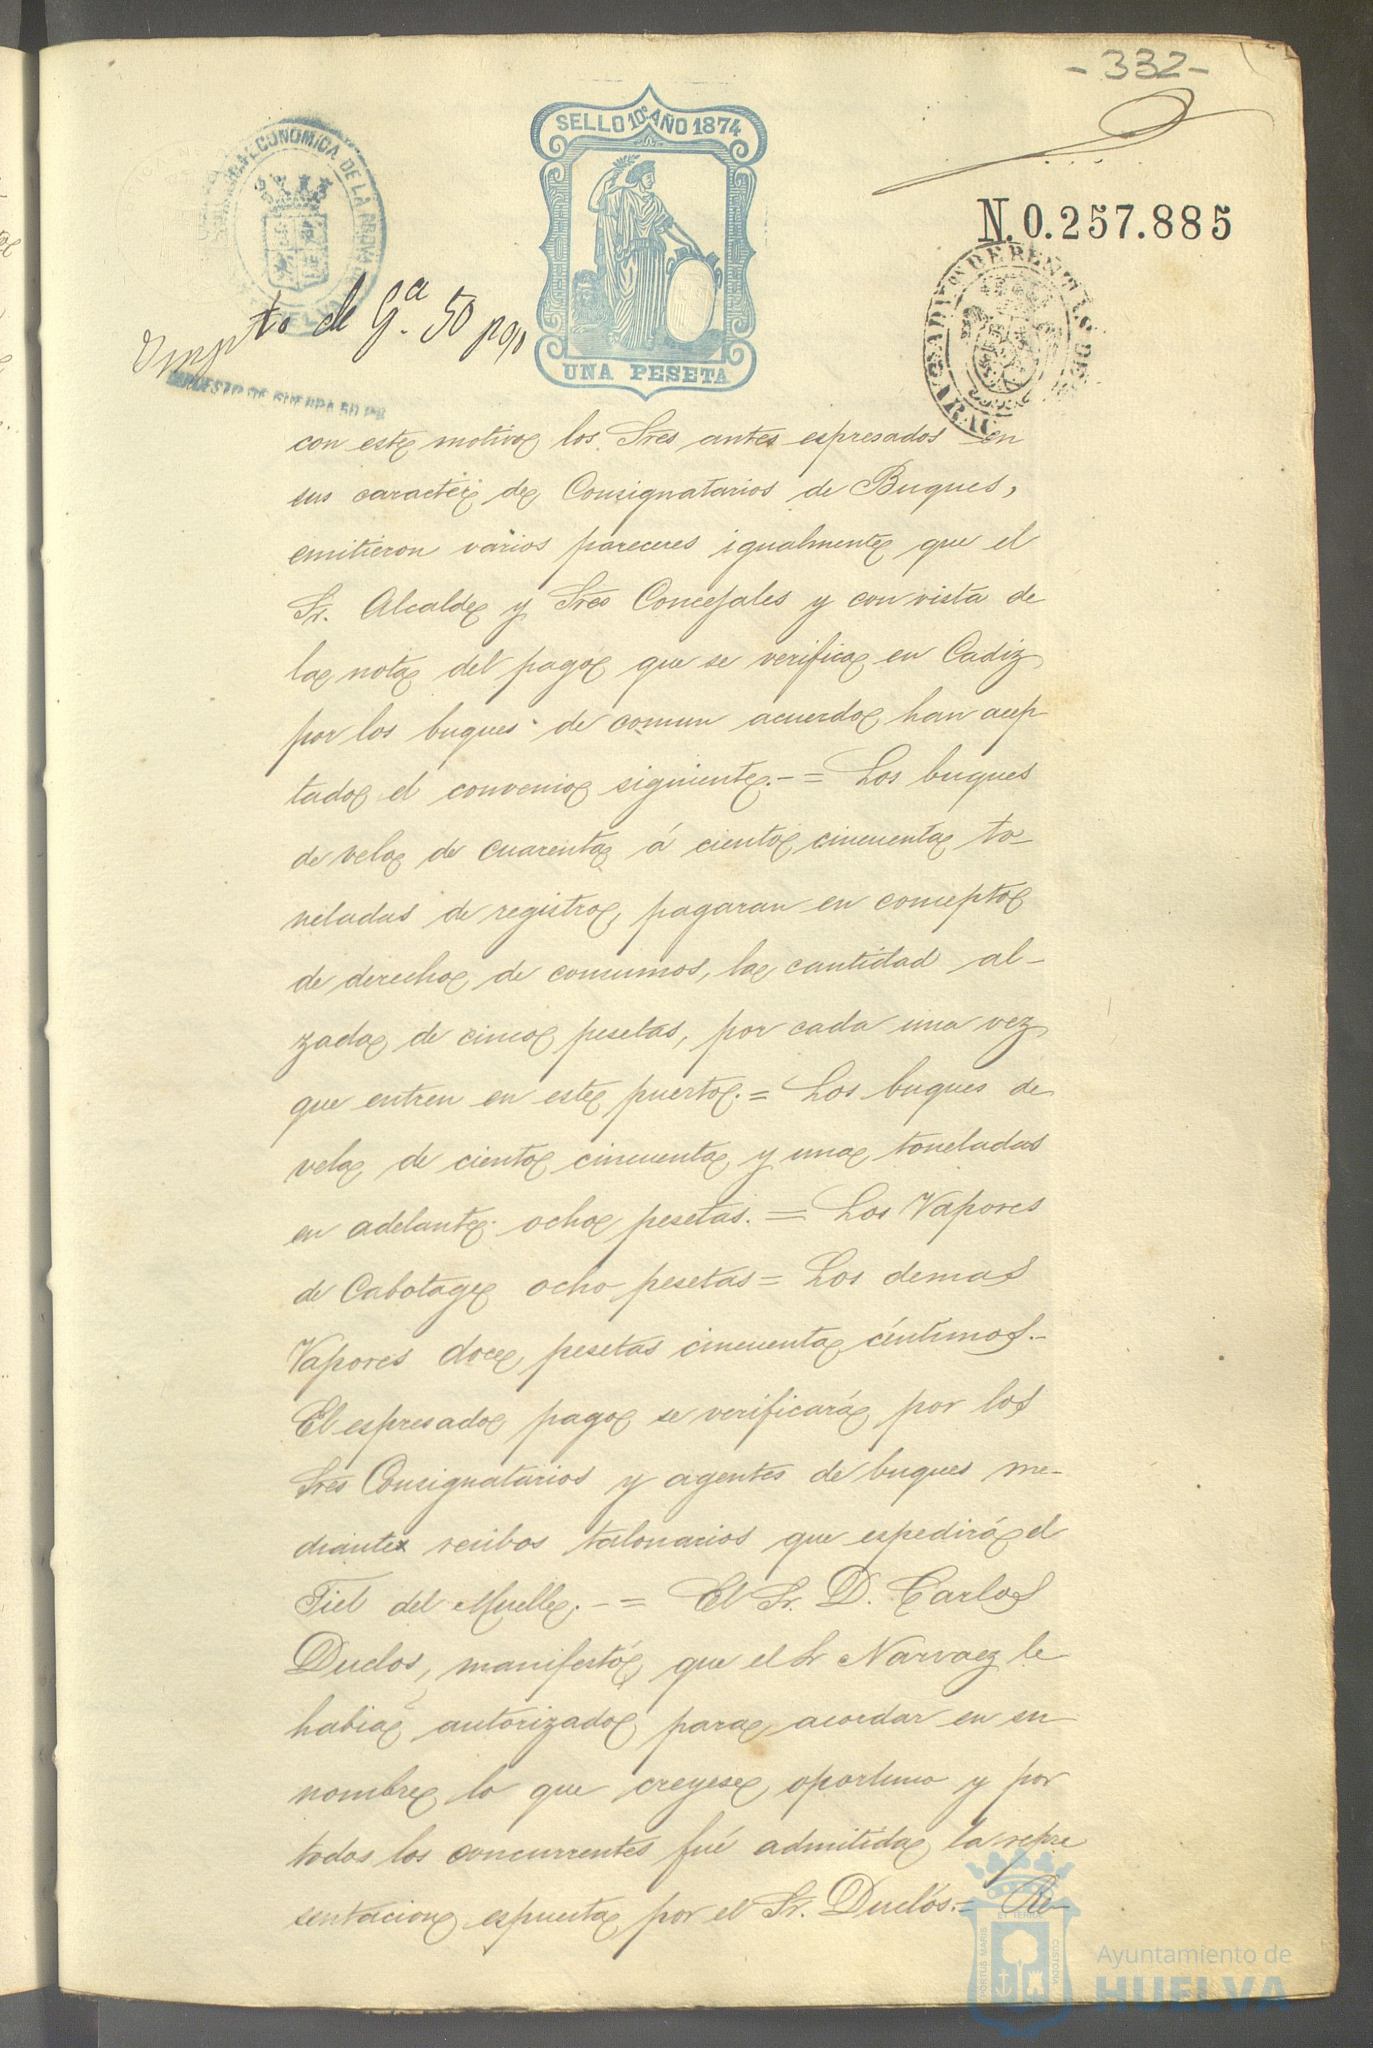 - 332 -
SELLO 10º AÑO 1874
ECONOMICA DE LA PROV
N. 0.257.885
Impto de Ga. 50 p%
UNA PESETA
IMPUESTO DE GUERRA 50 P%
con este motivo los Sres antes espresados en
sus caracter de Consignatarios de Buques,
emitieron varios pareceres igualmente que el
Sr. Alcalde y Sres Concejales y con vista de
la nota del pago que se verifica en Cadiz
por los buques de comun acuerdo han acep
tado el convenio siguiente.-= Los buques
de vela de cuarenta á ciento cincuenta to-
neladas de registro, pagaran en concepto
de derecho de consumos, la cantidad al-
zada de cinco pesetas, por cada una vez
que entren en este puerto.= Los buques de
vela de ciento cincuenta y una toneladas
en adelante ocho pesetas.= Los Vapores
de Cabotage ocho pesetas= Los demas
Vapores doce pesetas cincuenta céntimos.-
El espresado pago se verificará por los
Sres Consignatarios y agentes de buques me-
diante recibos talonarios que espedirá el
Fiel del Muelle.-= El Sr. D. Carlos
Duclos, manifestó que el Sr Narvaez le
habia autorizado para acordar en su
nombre lo que creyese oportuno y por
todos los concurrentes fué admitida la repre
sentacion espuesta por el Sr. Duclós.= Re-
PORTUS MARIS ET TERRÆ CUSTODIA
Ayuntamiento de
HUELVA